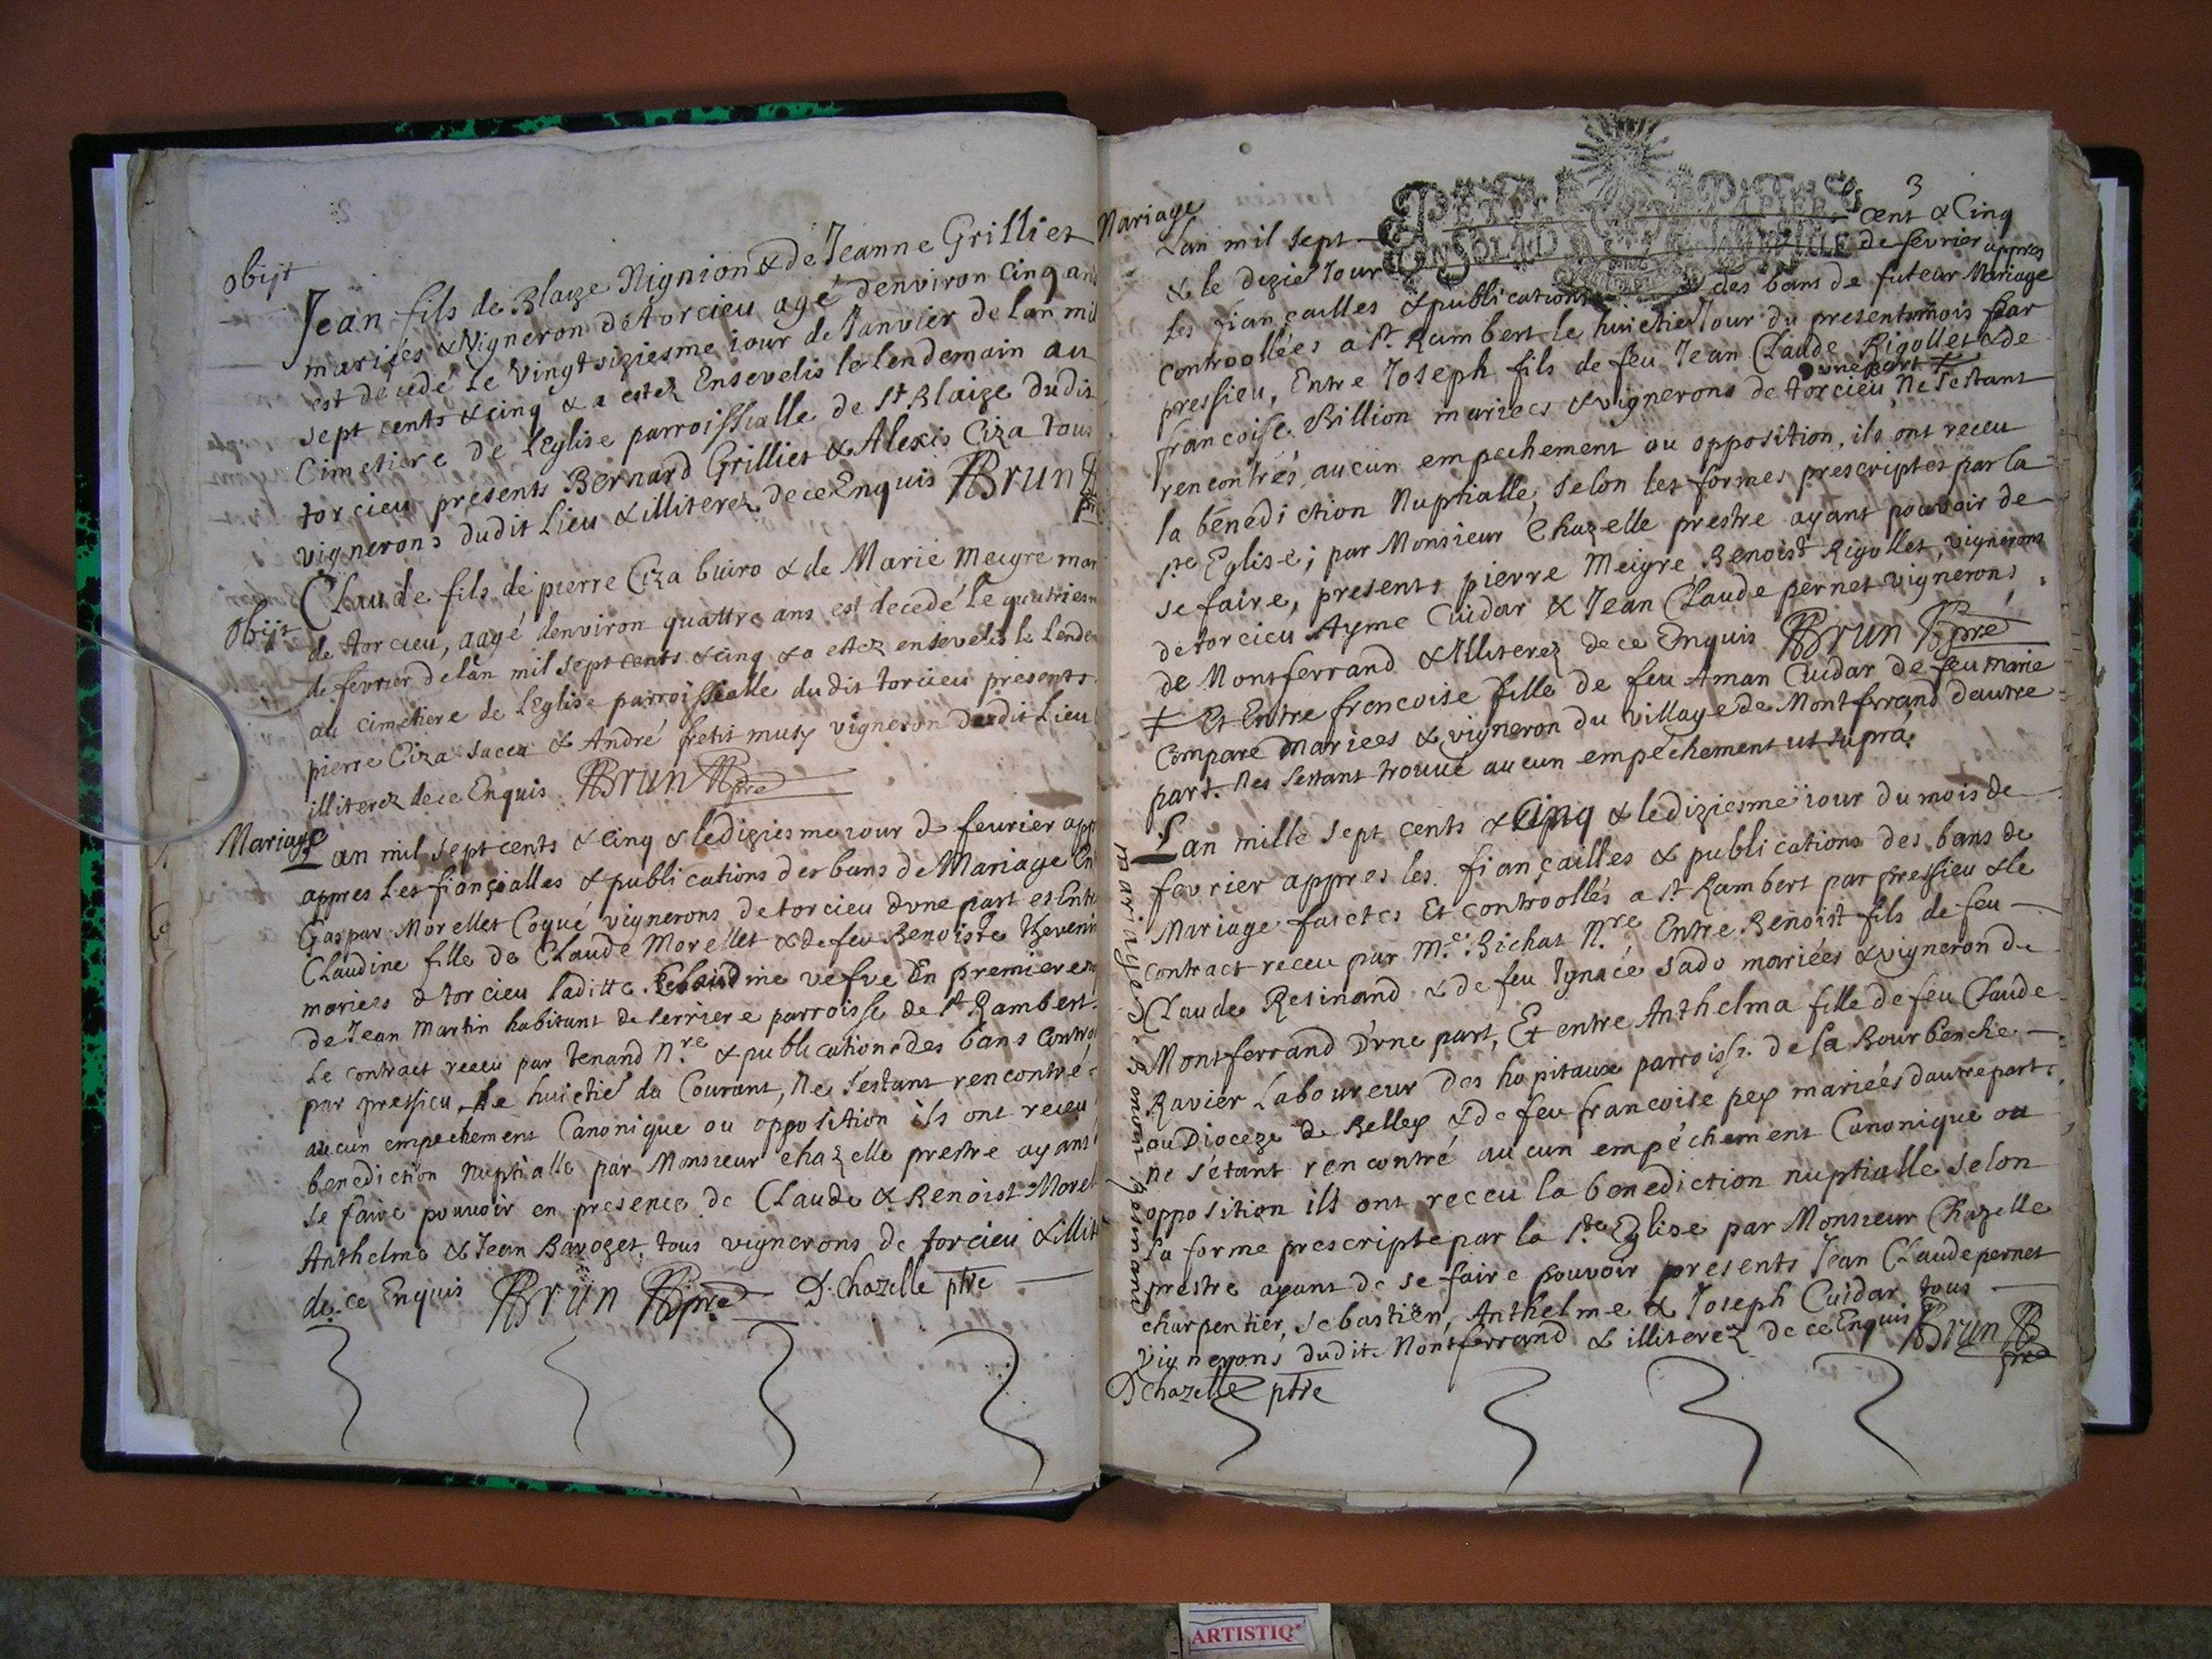 obijt
Jean fils de Blaize Nignion & de Jeanne Grilliet
mariées & Vigneron de torcieu agé denviron Cinq ans
est decedé Le Vingt siziesme iour de Janvier de Lan mil
sept cents & cinq & a estez Ensevelis le lendemain au
Cimetiere de leglise parroissialle de St Blaize dudit
torcieu presents Bernard Grilliet & Alexis Ciza tous
vignerons dudit Lieu & illiterez de ce Enquis Brun
obijt
Claude fils de pierre Ciza buiro & de Marie Meigre mar
de torcieu, aagé denviron quattre ans est decedé Le quatriesm
de fevrier de lan mil sept cents & cinq & a estez ensevelis le Lendem
au cimetiere de l'Eglise parroissialle dudit torcieu presents
pierre Ciza & André petit musy vigneron dudit Lieu
illiterez de ce Enquis Brun pre
Mariage
Lan mil sept cents & cinq & le diziesme iour de feurier app
appres Les fiançialles & publications des bans de Mariage En
Gaspar Morellet Coqué vignerons de torcieu dvne part et Entr
Claudine fille de Claude Morellet & de feu Benoiste Thevenin
mariees de torcieu laditte Claudine vefve En premiere
de Jean Martin habitant de serriere parroisse de St Rambert
Le contract receu par tenand Nre & publications des bans Contro
par pressieu, le huictie du Courant, Ne s'estant rencontré
aucun empechement Canonique ou opposition ils ont receu
benediction Nuptialle par Monsieur chazelle prestre ayant
se faire pouvoir en presence de Claude & Benoist Morel
Anthelme & Jean Bavozet, tous vignerons de torcieu & illit
de ce Enquis Brun pre D. Chazelle ptre
3
Mariage
Lan mil sept cent & Cinq
& le dizie Jour de fevrier appres
Les fiançailles & publications des bans de futeur Mariage
Controollées a St Rambert le huictie Jour du present mois par
pressieu, Entre Joseph fils de feu Jean Claude Rigollet & de
francoise Billion mariees & vignerons de torcieu dvne part ‡ Ne s'estant
rencontrés aucun empechement ou opposition, ils ont receu
la benediction Nuptialle, selon les formes prescriptes par la
ste Eglise; par Monsieur Chazelle prestre ayant pouvoir de
se faire, presents pierre Meigre Benoist Rigollet, vignerons
de torcieu Ayme Cuidar & Jean Claude pernet vignerons
de Montferrand & Illiterez de ce Enquis Brun pre
‡ Et Entre francoise fille de feu Aman Cuidar de feu marie
Compare mariees & vigneron du village de Montferrand dautre
part. Nes sestant trouué aucun empechement ut supra.
Lan mille sept cents & Cinq & le diziesme iour du mois de
fevrier appres les fiançailles & publications des bans de
Mariage faictes Et controollés a St Rambert par pressieu & le
contract receu par Me Bichat Nre Entre Benoist fils de feu
Claude Resinand & de feu Ignacé Sado mariées & vigneron de
Montferrand D'vne part, Et entre Anthelma fille de feu Claude
Ravier Laboureur des hopitaux parroisse de la Bourbenche
au Dioceze de Belley & de feu francoise pey mariées dautre part
ne s'étant rencontré aucun empéchement Canonique ou
opposition ils ont receu la benediction nuptialle selon
la forme prescripte par la ste Eglise par Monsieur Chazelle
prestre ayant de se faire pouvoir presents Jean Claude pernet
charpentier, sebastien, Anthelme & Joseph Cuidar tous
vignerons dudit Montferrand & illiterez de ce Enquis Brun pre
D chazelle ptre
Resinand
ARTISTIQ